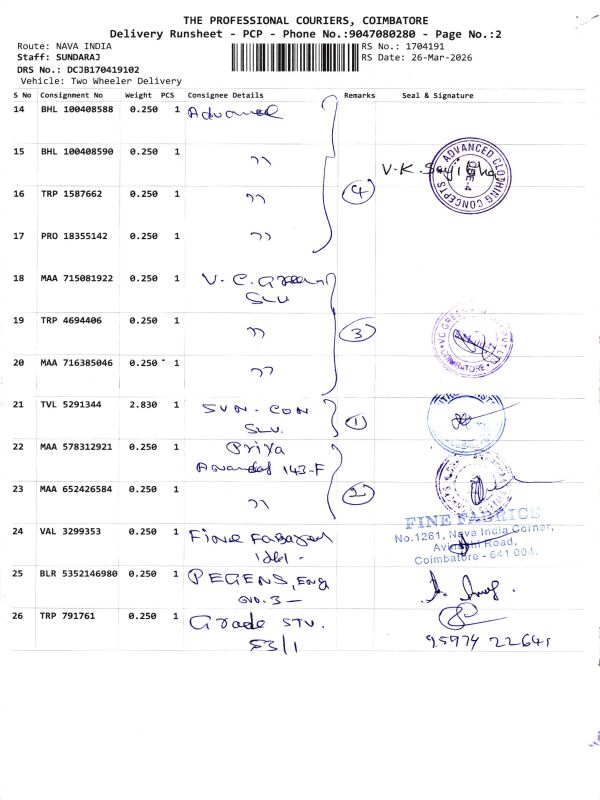 THE PROFESSIONAL COURIERS, COIMBATORE
Delivery Runsheet - PCP - Phone No.:9047080280 - Page No.:2
Route: NAVA INDIA
Staff: SUNDARAJ
DRS No.: DCJB170419102
Vehicle: Two Wheeler Delivery
RS No.: 1704191
RS Date: 26-Mar-2026
S No Consignment No Weight PCS Consignee Details Remarks Seal & Signature
14 BHL 100408588 0.250 1 Advanced
15 BHL 100408590 0.250 1 ,,
16 TRP 1587662 0.250 1 ,, 4
ADVANCED CLOTHING CONCEPTS
17 PRO 18355142 0.250 1 ,,
18 MAA 715081922 0.250 1 V. C. Green
19 TRP 4694406 0.250 1 ,, 3
COIMBATORE
20 MAA 716385046 0.250 1 ,,
21 TVL 5291344 2.830 1 SUN. CON 1
22 MAA 578312921 0.250 1 Priya
143-F
23 MAA 652426584 0.250 1 ,, 2
FINE FABRICS
No.1261, Nava India Corner,
Avinashi Road,
Coimbatore - 641 004.
24 VAL 3299353 0.250 1 Fine
25 BLR 5352146980 0.250 1 PEGENS, Eng
26 TRP 791761 0.250 1 Grade STV.
53/1
95974 22641